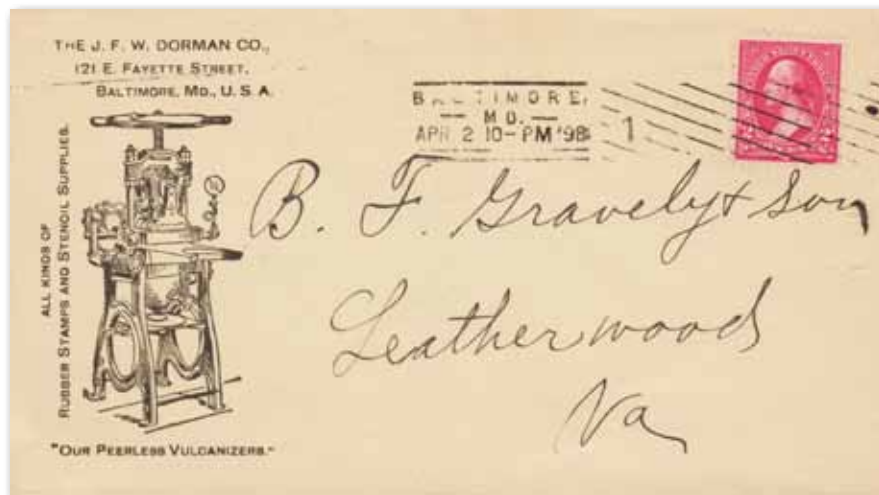 THE J. F. W. DORMAN CO.,
121 E. FAYETTE STREET.
BALTIMORE, MD., U. S. A.
ALL KINDS OF
RUBBER STAMPS AND STENCIL SUPPLIES.
"OUR PEERLESS VULCANIZERS."
BALTIMORE,
— MD. —
APR 2 10-PM '98
1
B. F. Gravely & Son
Leatherwood
Va